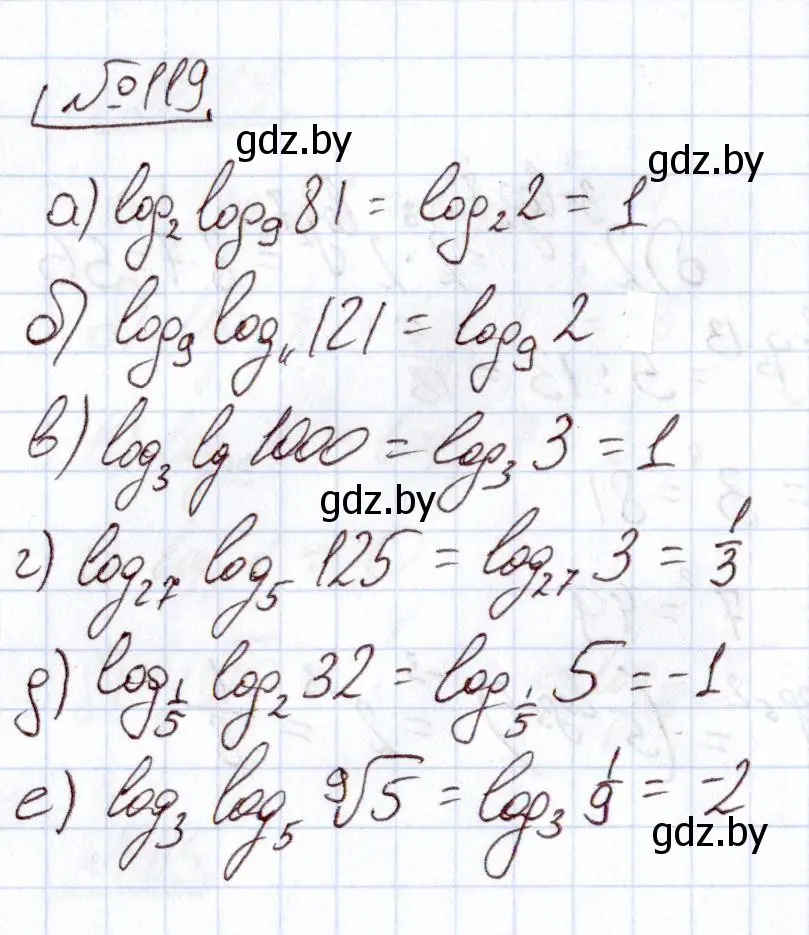 №119
gdz.by
gdz.by
а) log₂ log₉ 81 = log₂ 2 = 1
б) log₉ log₁₁ 121 = log₉ 2
в) log₃ lg 1000 = log₃ 3 = 1
gdz.by
г) log₂₇ log₅ 125 = log₂₇ 3 = 1/3
д) log_{1/5} log₂ 32 = log_{1/5} 5 = -1
е) log₃ log₅ ⁹√5 = log₃ 1/9 = -2
gdz.by